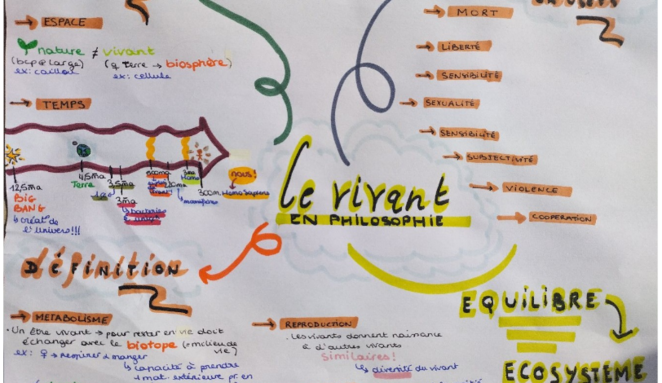 ESPACE
nature ≠ vivant
(bcp + large) (q Terre → biosphère)
ex: caillou ex: cellule
TEMPS
nous!
4,5ma
Terre
3,5ma
3ma
bactéries
500ma
mammifères
Homo
300m HomoSapiens
12,5ma
BIG
BANG
↳ créat° de
l'univers!!!
MORT
LIBERTÉ
SENSIBILITÉ
SEXUALITÉ
SENSIBILITÉ
SUBJECTIVITÉ
VIOLENCE
COOPERATION
Le vivant
EN PHILOSOPHIE
DÉFINITION
METABOLISME
• Un être vivant → pour rester en vie doit
échanger avec le biotope (= milieu de
vie)
ex: → respirer + manger
↳ capacité à prendre
mat. extérieure pr en
REPRODUCTION
. Les vivants donnent naissance
à d'autres vivants
similaires!
↳ diversité du vivant
EQUILIBRE
ECOSYSTEME